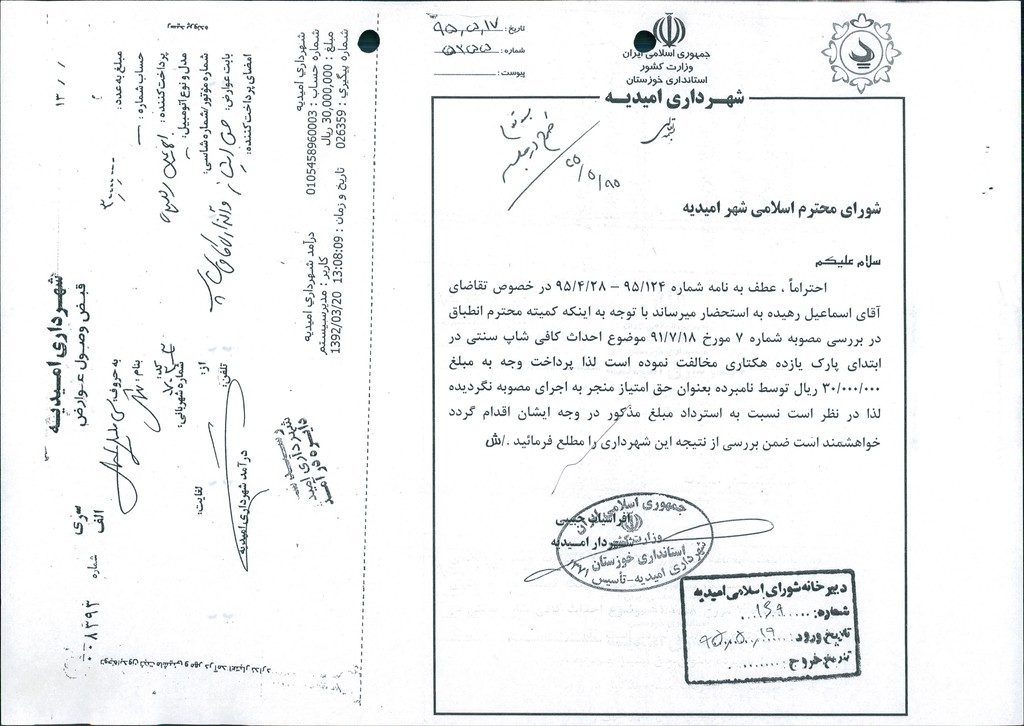 جمهوری اسلامی ایران
وزارت کشور
استانداری خوزستان
شهرداری امیدیه
تاریخ : ۹۵,۵,۱۷
شماره :
پیوست :
شورای محترم اسلامی شهر امیدیه
سلام علیکم
احتراماً ، عطف به نامه شماره ۹۵/۱۲۴ – ۹۵/۴/۲۸ در خصوص تقاضای
آقای اسماعیل رهیده به استحضار میرساند با توجه به اینکه کمیته محترم انطباق
در بررسی مصوبه شماره ۷ مورخ ۹۱/۷/۱۸ موضوع احداث کافی شاپ سنتی در
ابتدای پارک یازده هکتاری مخالفت نموده است لذا پرداخت وجه به مبلغ
۳۰/۰۰۰/۰۰۰ ریال توسط نامبرده بعنوان حق امتیاز منجر به اجرای مصوبه نگردیده
لذا در نظر است نسبت به استرداد مبلغ مذکور در وجه ایشان اقدام گردد
خواهشمند است ضمن بررسی از نتیجه این شهرداری را مطلع فرمائید ./ش
افراسیاب حبیبی
شهردار امیدیه
جمهوری اسلامی ایران
وزارت کشور
استانداری خوزستان
شهرداری امیدیه-تأسیس ۱۳۷۱
دبیرخانه شورای اسلامی امیدیه
شماره: ۱۶۹
تاریخ ورود: ۹۵,۵,۱۹
تاریخ خروج:
شهرداری امیدیه
قبض وصول عوارض
سری الف
شماره ۰۰۸۳۹۳
مبلغ به عدد: ۳۰,۰۰۰,۰۰۰
به حروف: سی میلیون ریال
حساب شماره:
بنام:
پرداخت کننده:
کد:
مدل و نوع اتومبیل:
شماره شهربانی:
شماره موتور/شماره شاسی:
از:
لغایت:
بابت عوارض:
تلفن:
امضای پرداخت کننده:
درآمد شهرداری امیدیه
شهرداری امیدیه
دایره درآمد
شهرداری امیدیه
درآمد شهرداری امیدیه
شماره حساب : 0105458960003
کاربر : مدیرسیستم
مبلغ : 30,000,000 ریال
تاریخ و زمان : 13:08:09 1392/03/20
شماره پیگیری : 026359